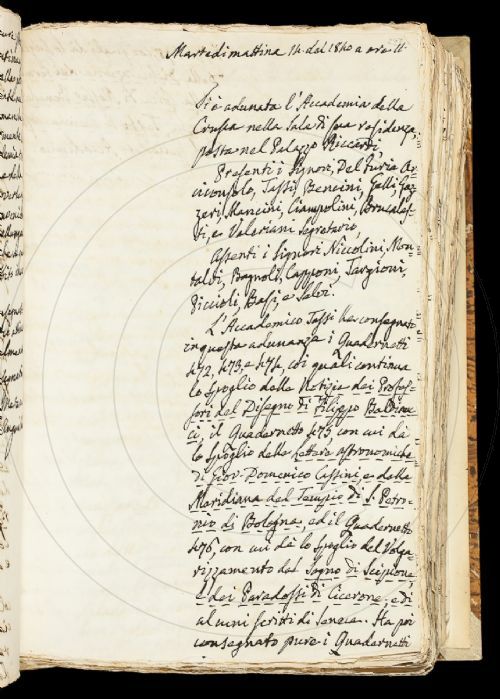 Martedì mattina 14. del 1840 a ore 11.
Si è adunata l'Accademia della
Crusca nelle Sale di sua residenza,
poste nel Palazzo Riccardi,
Presenti i Signori, Del Furia Ar-
ciconsolo, Tassi, Bencini, Gelli, Gaz-
zeri, Mancini, Ciampolini, Brucalas-
si, e Valeriani Segretario,
Assenti i Signori Niccolini, Mon-
talvi, Bagnoli, Capponi, Targioni,
Piccioli, Basi, e Salvi.
L'Accademico Tassi ha consegnato
in questa adunanza i Quadernetti
472, 473, e 474, coi quali continua
lo Spoglio delle Notizie dei Profes-
sori del Disegno di Filippo Baldinuc-
ci, il Quadernetto 475, con cui dà
lo Spoglio delle Lettere astronomiche
di Giov. Domenico Cassini, e della
Meridiana del Tempio di S. Petro-
nio di Bologna, ed il Quadernetto
476 con cui dà lo Spoglio del Volga-
rizzamento del Sogno di Scipione
e dei Paradossi di Cicerone, e di
alcuni scritti di Seneca. Ha poi
consegnato pure i Quadernetti